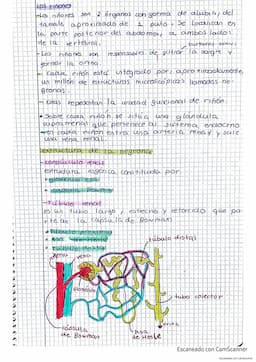 Los riñones
-Los riñones son 2 órganos con forma de alubia, del
tamaño aproximado de 1 puño. Se localizan en
la parte posterior del abdomen, a ambos lados
de la vertebral.
- Los riñones son responsables de filtrar la sangre y
formar la orina.
- Cada riñón está integrado por, aproximadamente,
un millón de estructuras microscópicas llamadas ne-
fronas.
- Ellas representan la unidad funcional de riñón
- Sobre cada riñón se sitúa una glándula
suprarrenal que pertenece al sistema endocrino
-en cada riñón entra una arteria renal y sale
una vena renal.
estructura de la nefrona
-corpúsculo renal
estructura esférica constituida por
-túbulo renal
es un tubo largo, estrecho y retorcido que pa-
rte de la cápsula de Bowman
túbulo distal
tubo colector
orina
cápsula
de Bowman
asa
de Henle
Escaneado con CamScanner